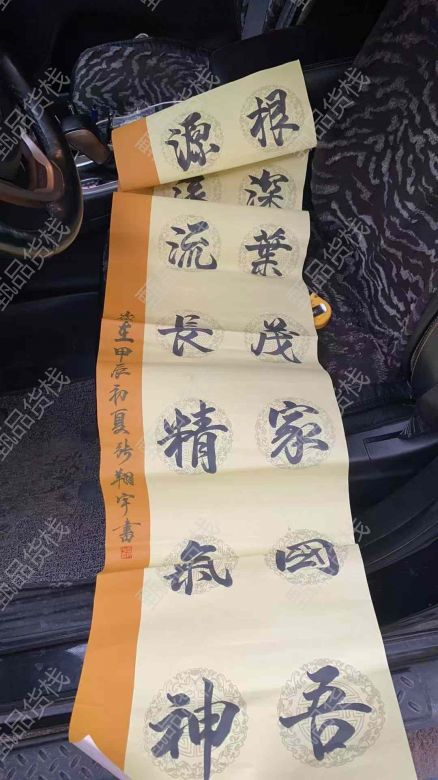 根深葉茂家國吾
源流長精氣神
甲辰初夏张翔宇書
甄品货栈